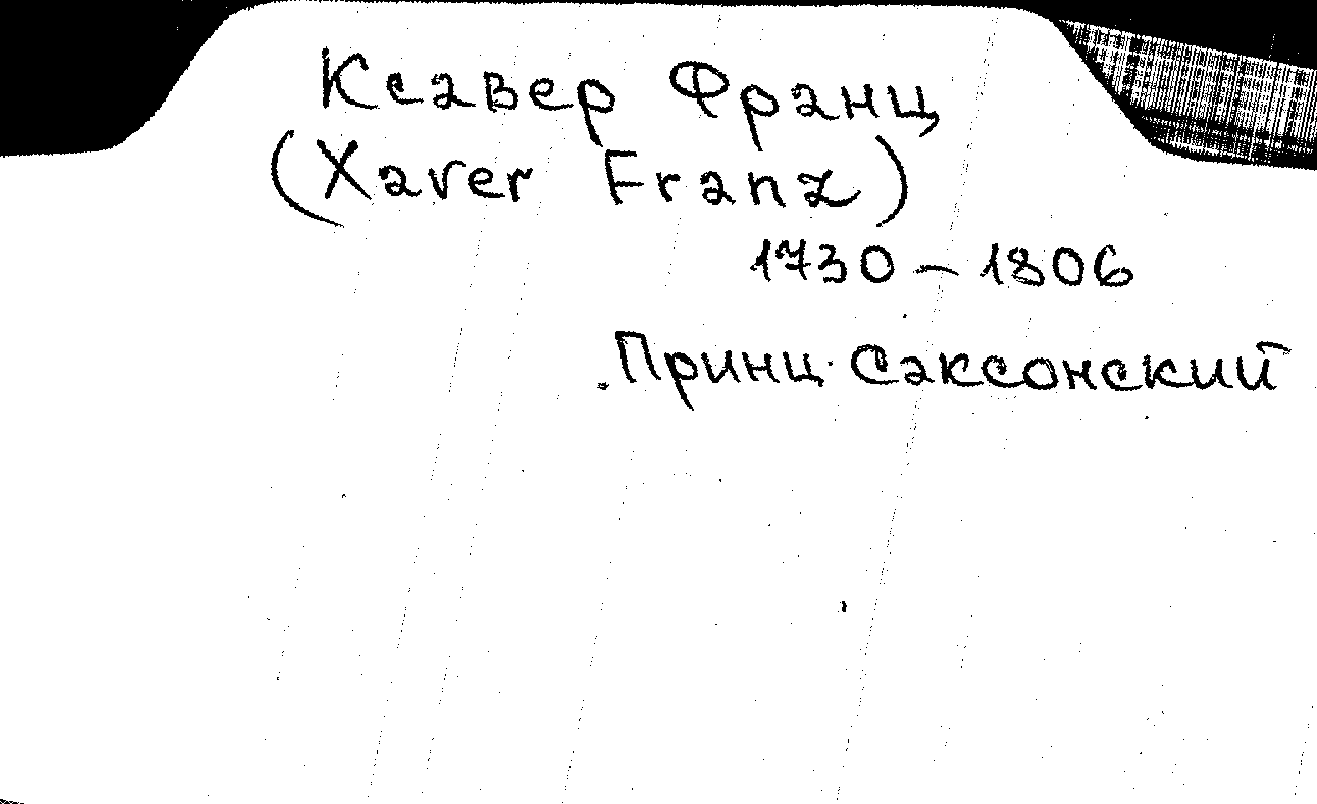 Ксавер Франц
(Xaver Franz)
1730 – 1806
Принц Саксонский